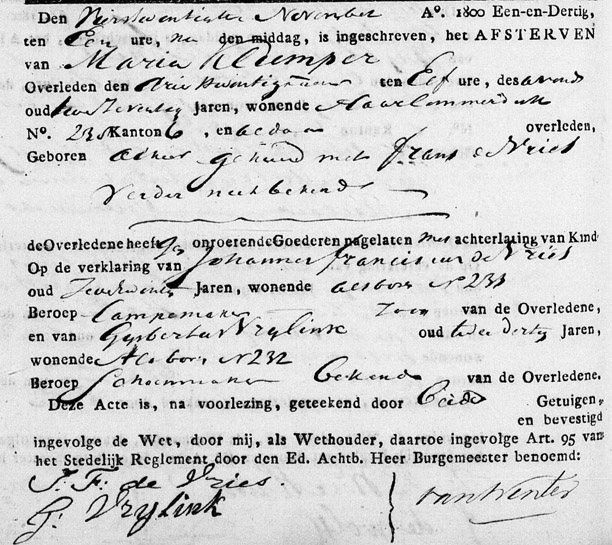 Den November A°. 1800 Een-en-Dertig,
ten Een ure, na den middag, is ingeschreven, het AFSTERVEN
van Maria Klumper
Overleden den drie twentig ten Elf ure, des avond
oud twe Seventig Jaren, wonende Haarlemmerdyk
N°. 23 Kanton 6, en aldaar overleden,
Geboren alhier gehuwd met Frans de Vries
Verder niet bekend
de Overledene heeft g onroerende Goederen nagelaten met achterlating van Kind
Op de verklaring van Johannes Franciscus de Vries
oud Jaren, wonende als boven N 233
Beroep Lampemaker Zoon van de Overledene,
en van Gysbertus Vrylink oud twee dertig Jaren,
wonende Als boven N 232
Beroep Schoenmaker bekende van de Overledene.
Deze Acte is, na voorlezing, geteekend door Beide Getuigen,
en bevestigd
ingevolge de Wet, door mij, als Wethouder, daartoe ingevolge Art. 95 van
het Stedelijk Reglement door den Ed. Achtb. Heer Burgemeester benoemd:
J. F. de Vries.
G. Vrylink van Winter